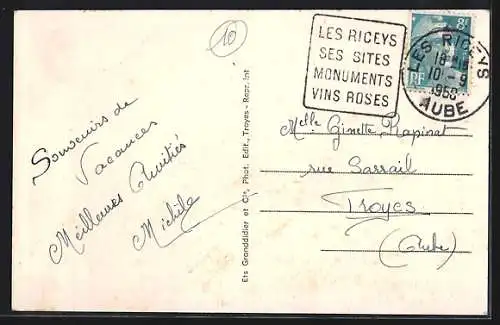 10
LES RICEYS
SES SITES
MONUMENTS
VINS ROSES
8F
RF
LES RICEYS
18 H
10 - 9
1950
AUBE
Souvenirs de
Vacances
Meilleures Amitiés
Michèle
Ets Granddidier et Cie, Phot. Edit., Troyes - Repr. Int
Melle Ginette Rapinat
rue Sarrail
Troyes
(Aube)